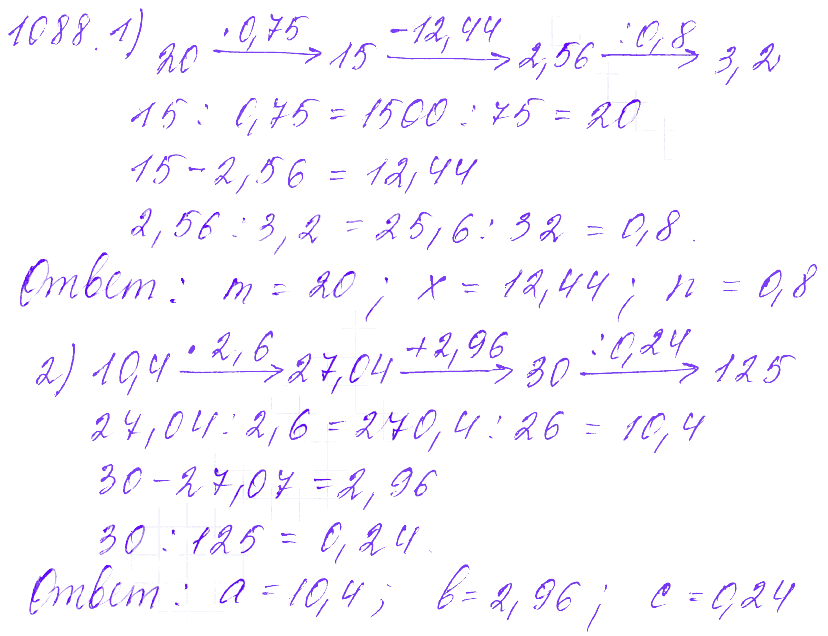 1088. 1) 20 —·0,75→ 15 —-12,44→ 2,56 —:0,8→ 3,2
15 : 0,75 = 1500 : 75 = 20
15 - 2,56 = 12,44
2,56 : 3,2 = 25,6 : 32 = 0,8.
Ответ: m = 20; x = 12,44; n = 0,8
2) 10,4 —·2,6→ 27,04 —+2,96→ 30 —:0,24→ 125
27,04 : 2,6 = 270,4 : 26 = 10,4
30 - 27,07 = 2,96
30 : 125 = 0,24.
Ответ: a = 10,4; b = 2,96; c = 0,24